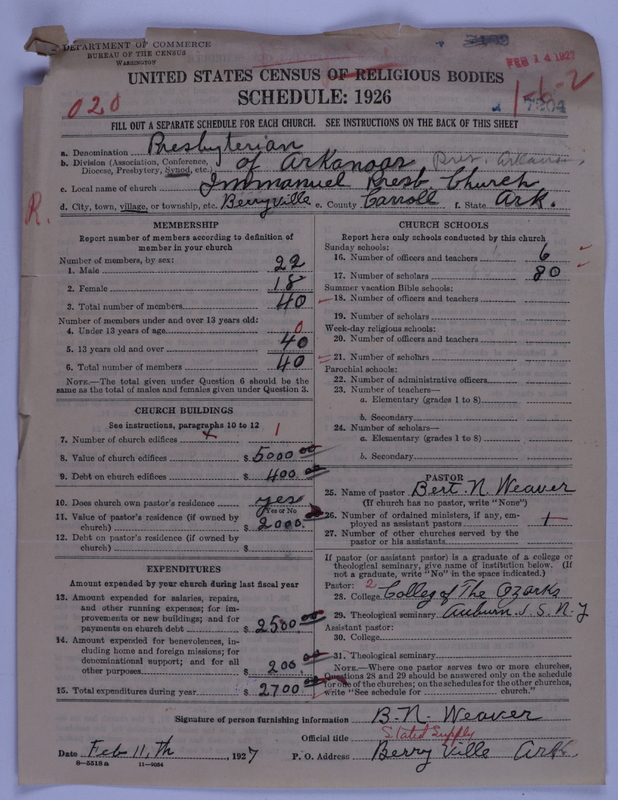 DEPARTMENT OF COMMERCE
BUREAU OF THE CENSUS
WASHINGTON
FEB 14 1927
UNITED STATES CENSUS OF RELIGIOUS BODIES
SCHEDULE: 1926
020
1-6-2
FILL OUT A SEPARATE SCHEDULE FOR EACH CHURCH. SEE INSTRUCTIONS ON THE BACK OF THIS SHEET
a. Denomination Presbyterian
b. Division (Association, Conference, Diocese, Presbytery, Synod, etc.) of Arkansas
c. Local name of church Immanuel Presb. Church
R.
d. City, town, village, or township, etc. Berryville e. County Carroll f. State Ark.
MEMBERSHIP
Report number of members according to definition of
member in your church
Number of members, by sex:
1. Male 22
2. Female 18
3. Total number of members 40
Number of members under and over 13 years old:
4. Under 13 years of age 0
5. 13 years old and over 40
6. Total number of members 40
NOTE.—The total given under Question 6 should be the
same as the total of males and females given under Question 3.
CHURCH BUILDINGS
See instructions, paragraphs 10 to 12
7. Number of church edifices x 1
8. Value of church edifices $ 5000 00
9. Debt on church edifices $ 400 00
10. Does church own pastor's residence yes
Yes or No
11. Value of pastor's residence (if owned by
church) $ 2000.
12. Debt on pastor's residence (if owned by
church) $
EXPENDITURES
Amount expended by your church during last fiscal year
13. Amount expended for salaries, repairs,
and other running expenses; for im-
provements or new buildings; and for
payments on church debt $ 2500 00
14. Amount expended for benevolences, in-
cluding home and foreign missions; for
denominational support; and for all
other purposes $ 200 00
15. Total expenditures during year $ 2700 00
CHURCH SCHOOLS
Report here only schools conducted by this church
Sunday schools:
16. Number of officers and teachers 6
17. Number of scholars 80
Summer vacation Bible schools:
18. Number of officers and teachers
19. Number of scholars
Week-day religious schools:
20. Number of officers and teachers
21. Number of scholars
Parochial schools:
22. Number of administrative officers
23. Number of teachers—
a. Elementary (grades 1 to 8)
b. Secondary
24. Number of scholars—
a. Elementary (grades 1 to 8)
b. Secondary
PASTOR
25. Name of pastor Bert. N. Weaver
(If church has no pastor, write "None")
26. Number of ordained ministers, if any, em-
ployed as assistant pastors
27. Number of other churches served by the
pastor or his assistants
If pastor (or assistant pastor) is a graduate of a college or
theological seminary, give name of institution below. (If
not a graduate, write "No" in the space indicated.)
Pastor: 2
28. College Colleg of The Ozarks
29. Theological seminary Auburn
Assistant pastor:
30. College
31. Theological seminary
NOTE.—Where one pastor serves two or more churches,
Questions 28 and 29 should be answered only on the schedule
for one of the churches; on the schedules for the other churches,
write "See schedule for church."
Signature of person furnishing information B. N. Weaver
Official title Stated Supply
Date Feb 11, th 1927 P. O. Address Berry Ville Ark.
8—5518a 11—9054